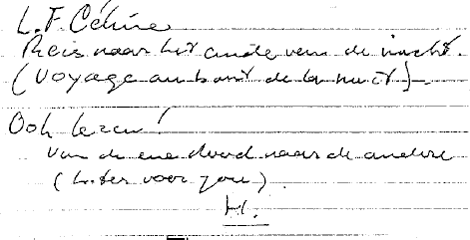 L.F. Céline
Reis naar het einde van de nacht.
(Voyage au bout de la nuit)
Ook lezen!
van de ene dood naar de andere
(later voor jou).
H.